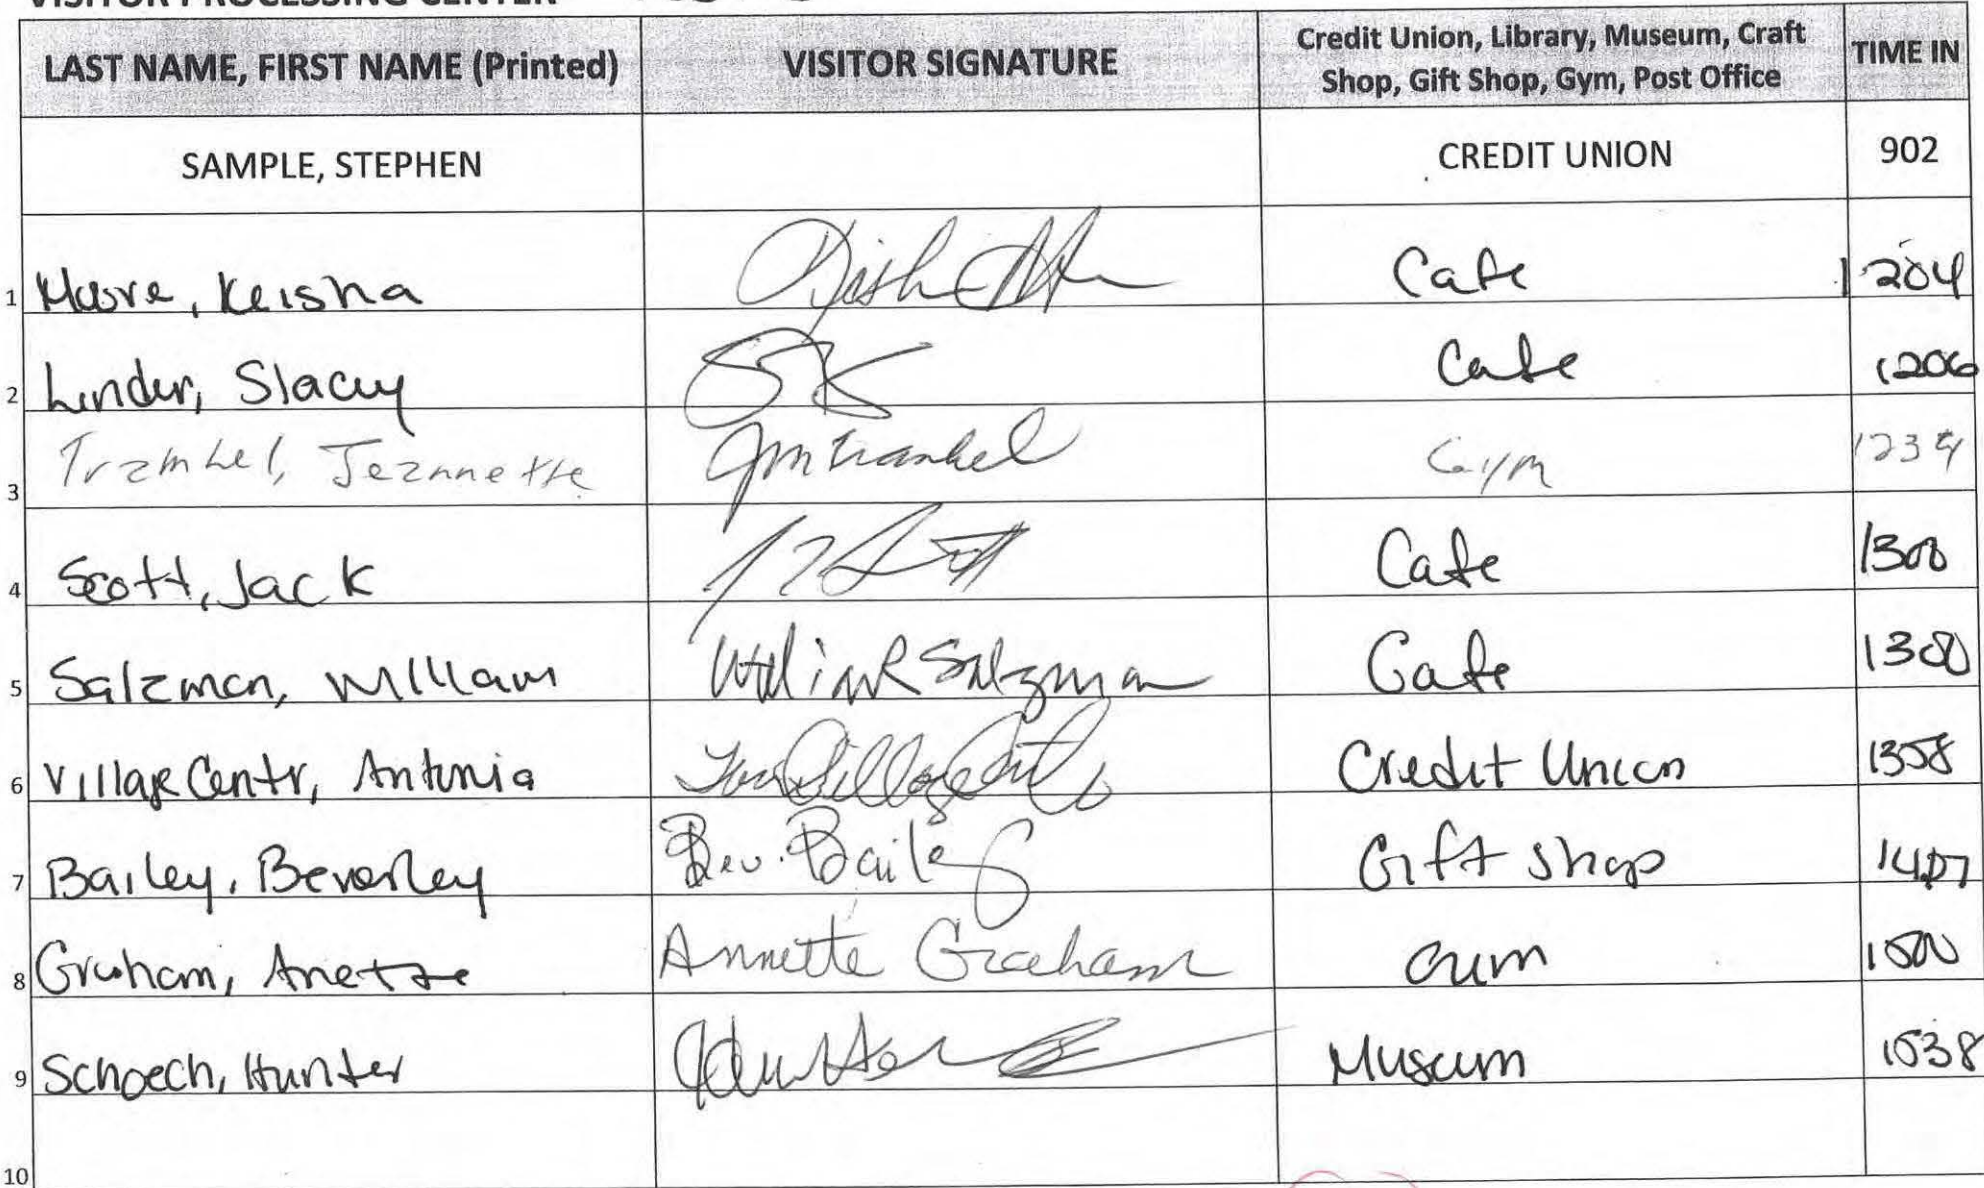 VISITOR PROCESSING CENTER
LAST NAME, FIRST NAME (Printed) VISITOR SIGNATURE Credit Union, Library, Museum, Craft Shop, Gift Shop, Gym, Post Office TIME IN
SAMPLE, STEPHEN CREDIT UNION 902
1 Moore, Keisha Cafe 1204
2 Linder, Stacey Cafe 1206
3 Jeannette Gym
4 Scott, Jack Cafe 1300
5 Salzman, William William R Salzman Cafe 1300
6 Antonia Credit Union 1358
7 Bailey, Beverley Bev. Bailey Gift Shop 1407
8 Graham, Anette Annette Graham 1500
9 Schoech, Hunter Hunter Museum 1538
10